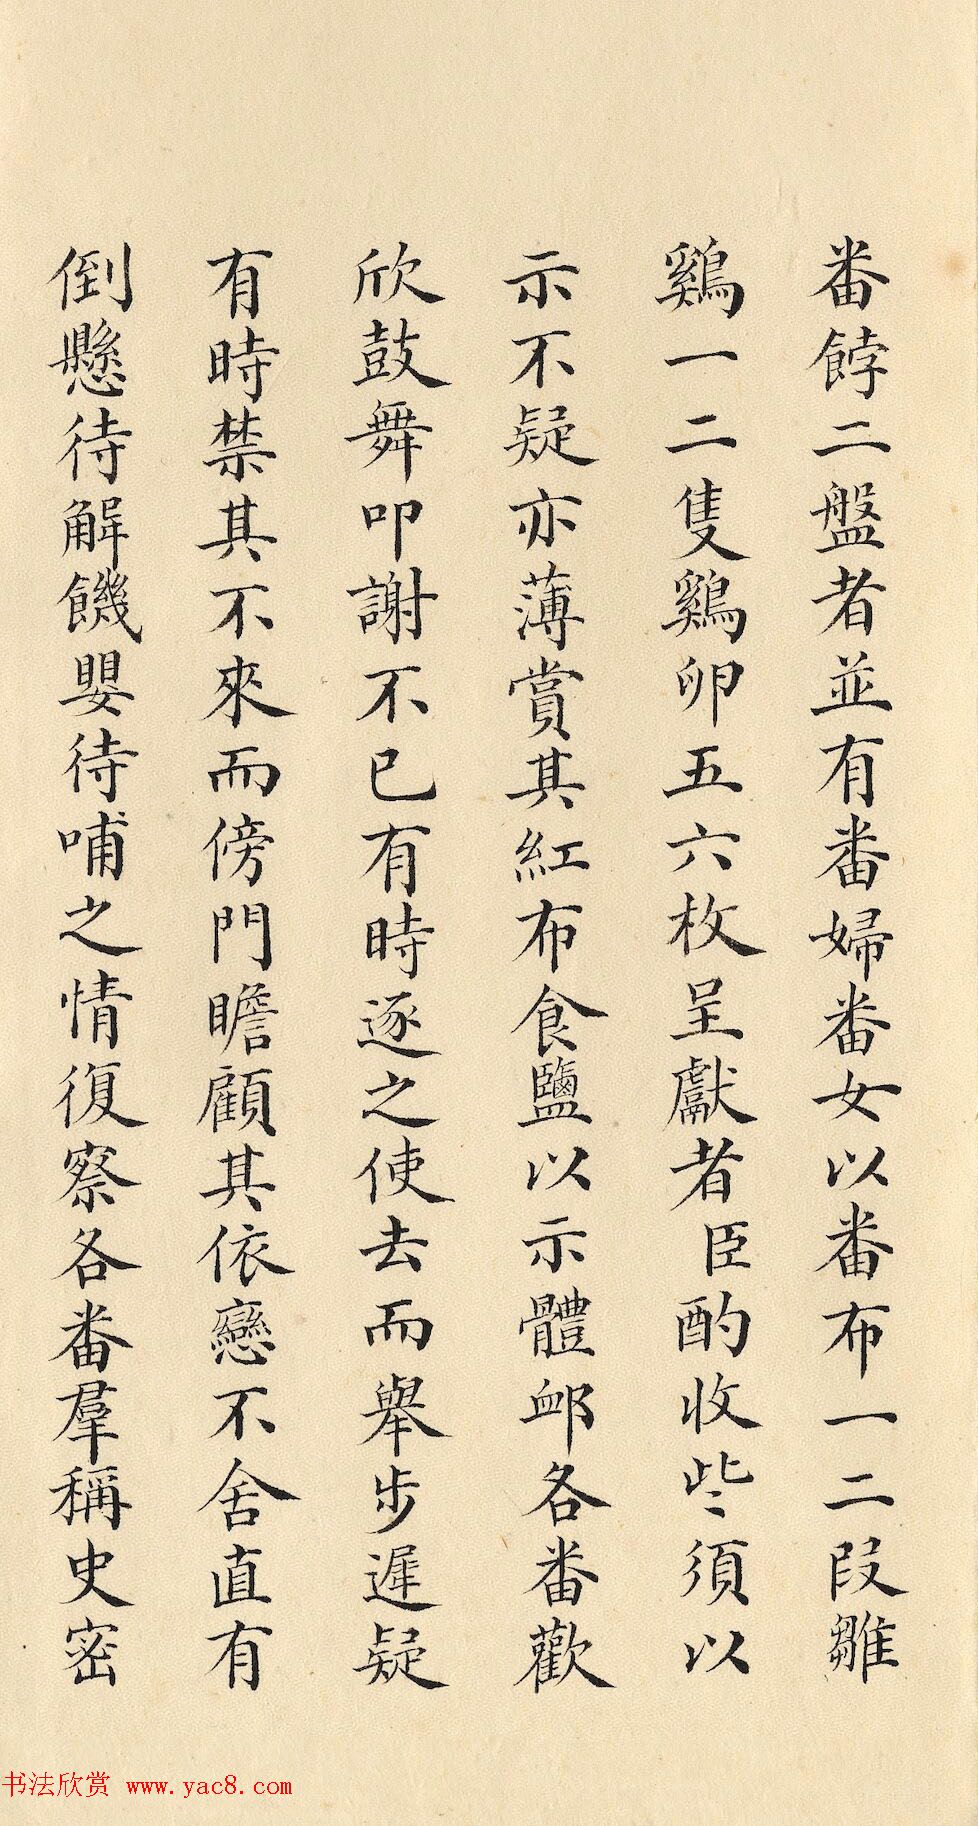 番餑二盤者並有番婦番女以番布一二段雛
鷄一二隻鷄卵五六枚呈獻者臣酌收些須以
示不疑亦薄賞其紅布食鹽以示體卹各番歡
欣鼓舞叩謝不已有時逐之使去而舉步遲疑
有時禁其不來而傍門瞻顧其依戀不舍直有
倒懸待解饑嬰待哺之情復察各番羣稱史密
书法欣赏 www.yac8.com